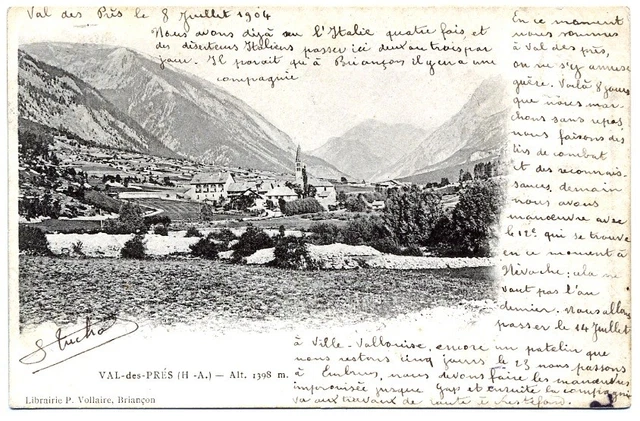 Val des Près le 8 Juillet 1904
Nous avons déjà vu l'Italie quatre fois et
des déserteurs Italiens passer ici deux ou trois par
jour. Il parait qu'à Briançon il y en a une
compagnie
En ce moment
nous sommes
à Val des près,
on ne s'y amuse
guère. Voilà 8 jours
que nous mar-
chons sans repos,
nous faisons des
tirs de combat
et des reconnais-
sances, demain
nous avons
manœuvre avec
le 12e qui se trouve
en ce moment à
Névache; cela ne
vaut pas l'an
dernier. Nous allons
passer le 14 Juillet
à Ville-Vallouise, encore un patelin que
nous restons cinq jours le 25 nous passons
à Embrun, nous devons faire les manœuvres
improvisée jusque Gap et ensuite la compagnie
va aux travaux de route à
VAL-des-PRÉS (H-A.) — Alt. 1398 m.
Librairie P. Vollaire, Briançon